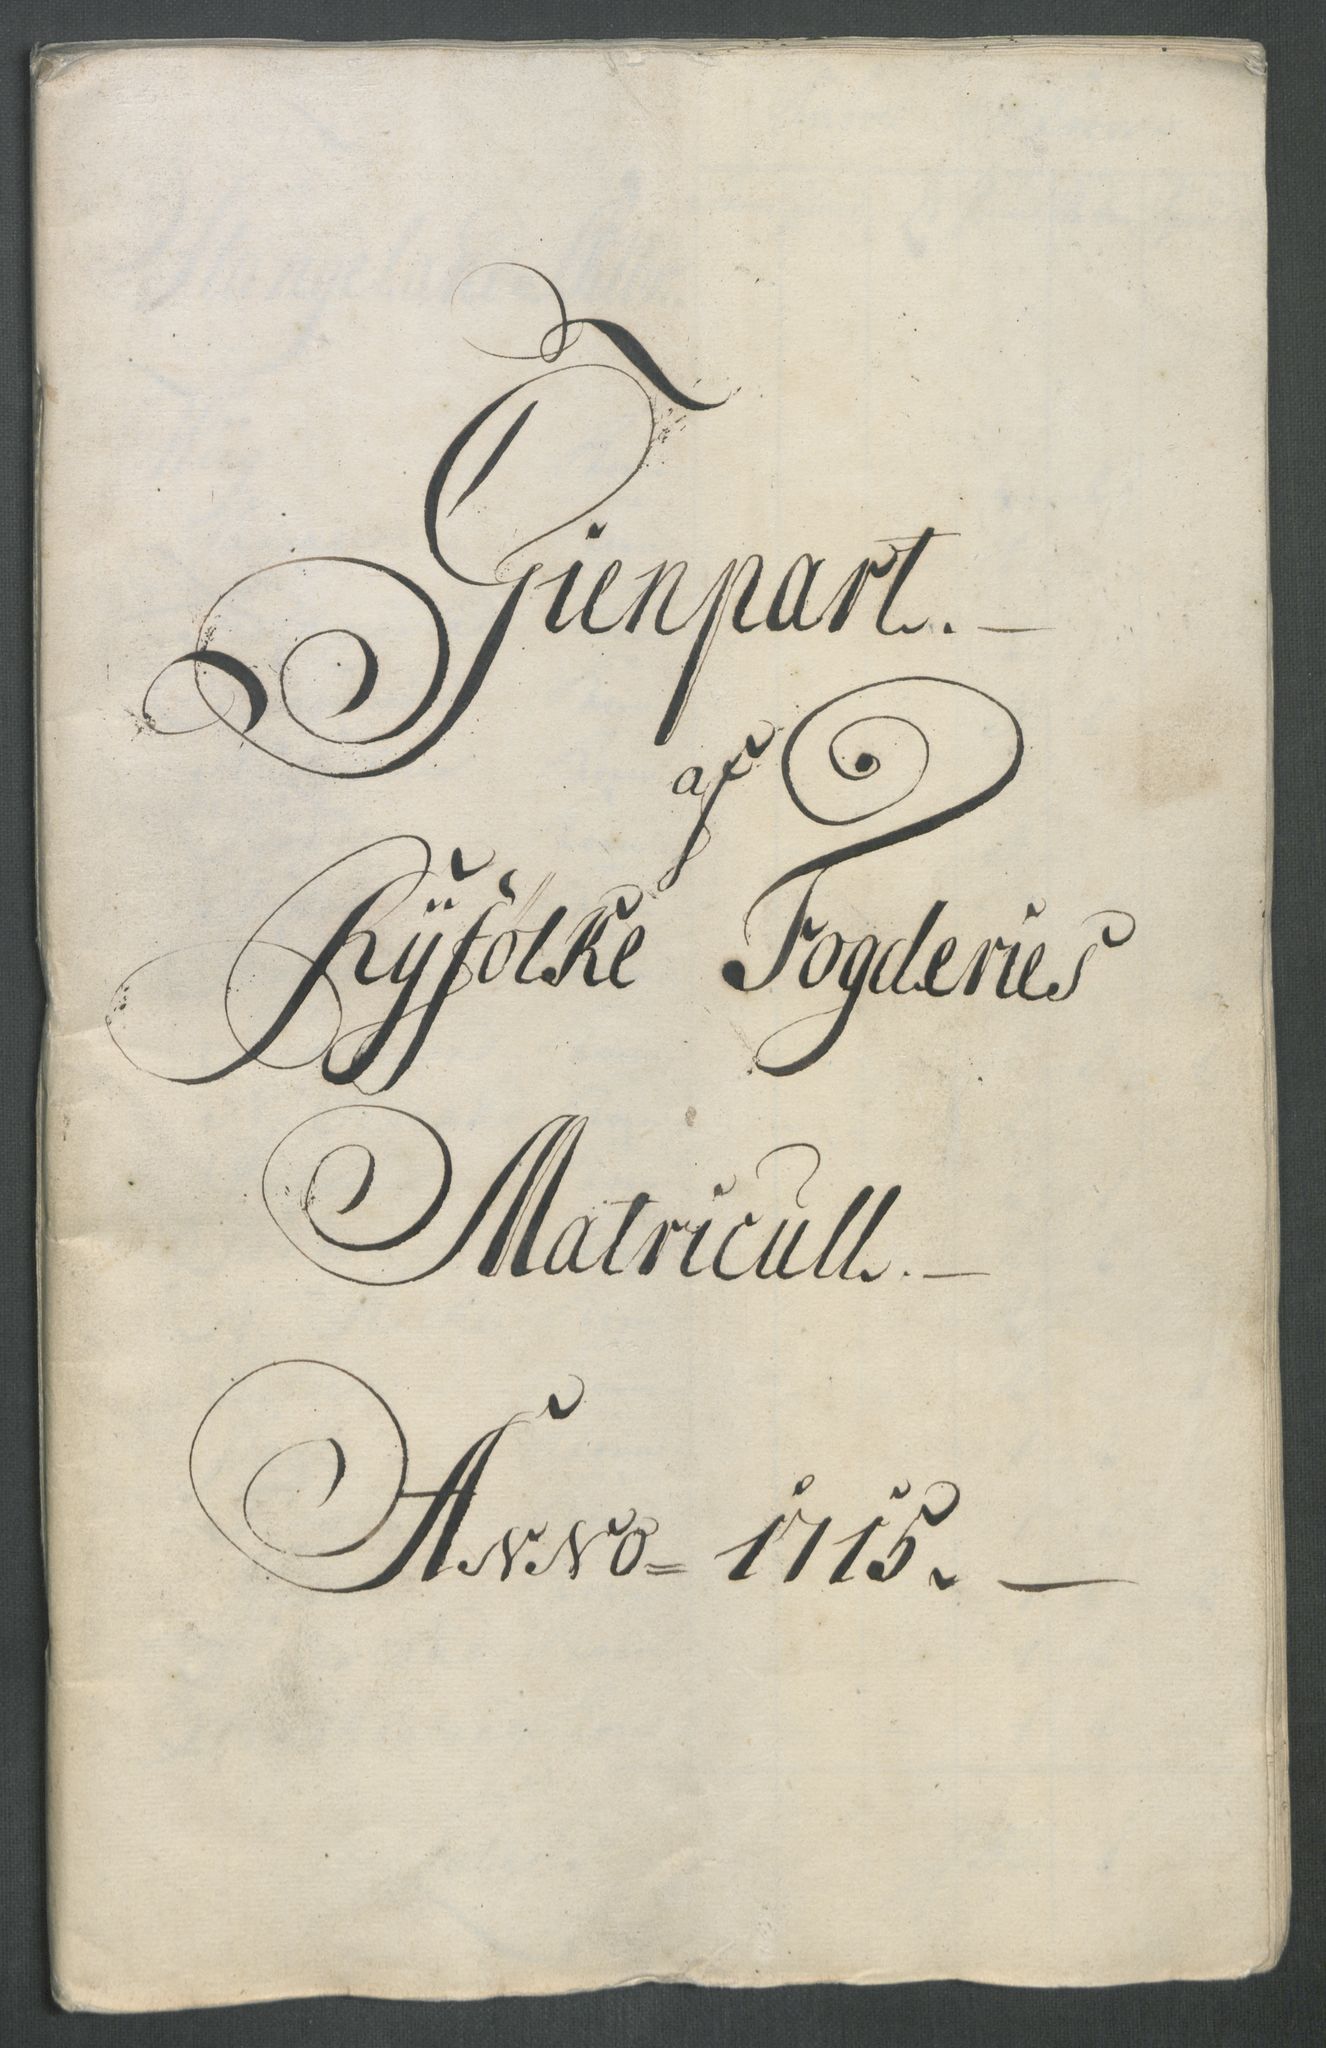 Gienpart. —
af
Ryfølke Fogderies
Matricull. —
Anno = 1715. —